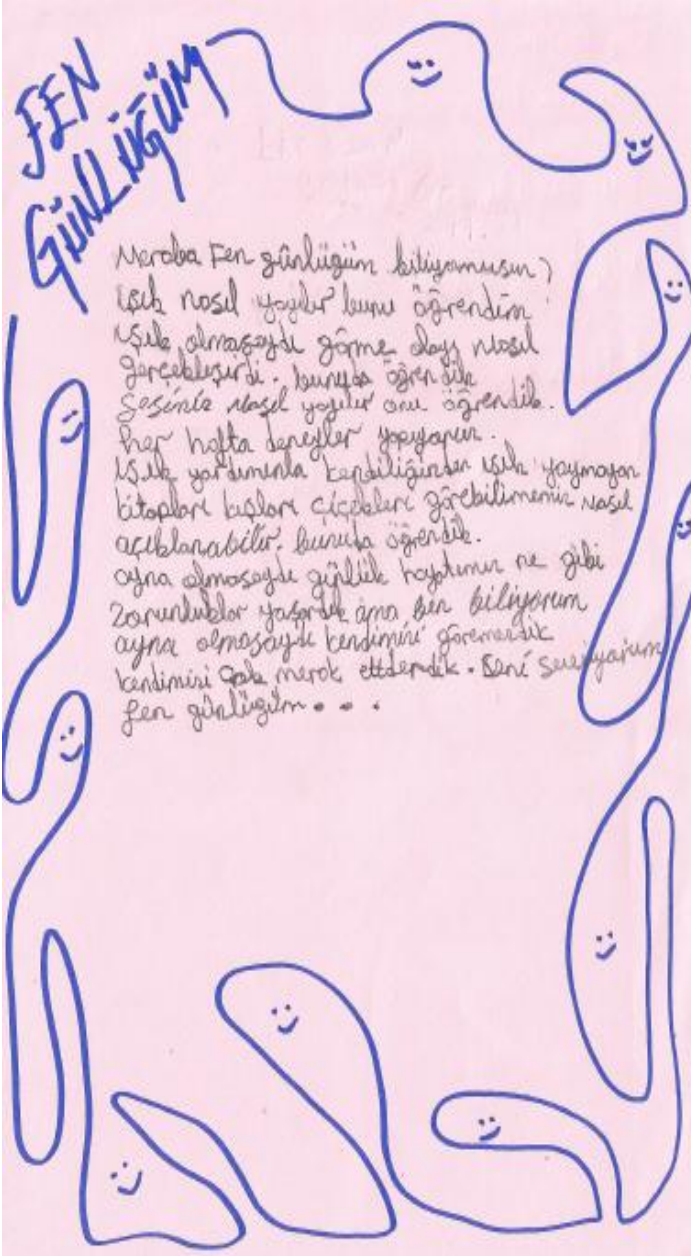 FEN
GÜNLÜĞÜM
Meraba Fen günlüğüm biliyomusun?
ışık nasıl yayılır bunu öğrendim
ışık olmasaydı görme olayı nasıl
gerçekleşirdi. bunuda öğrendik
Sesinis nasıl yayılır onu öğrendik.
her hafta deneyler yapıyoruz.
ışık yardımınla kendiliğinden ışık yaymayan
kitapları kuşları çiçekleri görebilmemiz nasıl
açıklanabilir. bunuda öğrendik.
ayna olmasaydı günlük hayatımız ne gibi
zorunluklar yaşardık ama ben biliyorum
ayna olmasaydı kendimizi göremezdik
kendimizi çok merok ederdik. Seni seviyorum
fen günlüğüm...